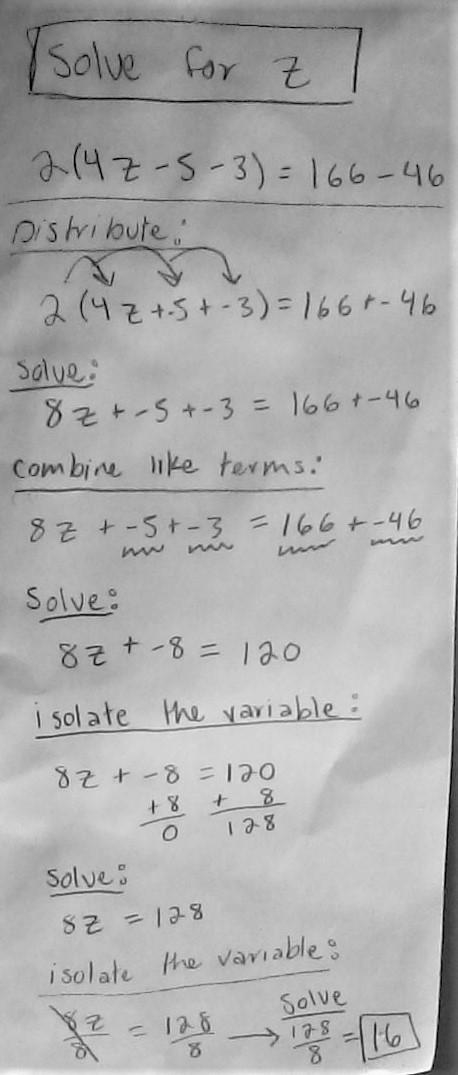 Solve for z
2(4z - 5 - 3) = 166 - 46
Distribute:
2(4z + -5 + -3) = 166 + -46
Solve:
8z + -5 + -3 = 166 + -46
combine like terms:
8z + -5 + -3 = 166 + -46
Solve:
8z + -8 = 120
isolate the variable:
8z + -8 = 120
+8 + 8
0 128
Solve:
8z = 128
isolate the variable:
8z/8 = 128/8 → Solve 128/8 = 16